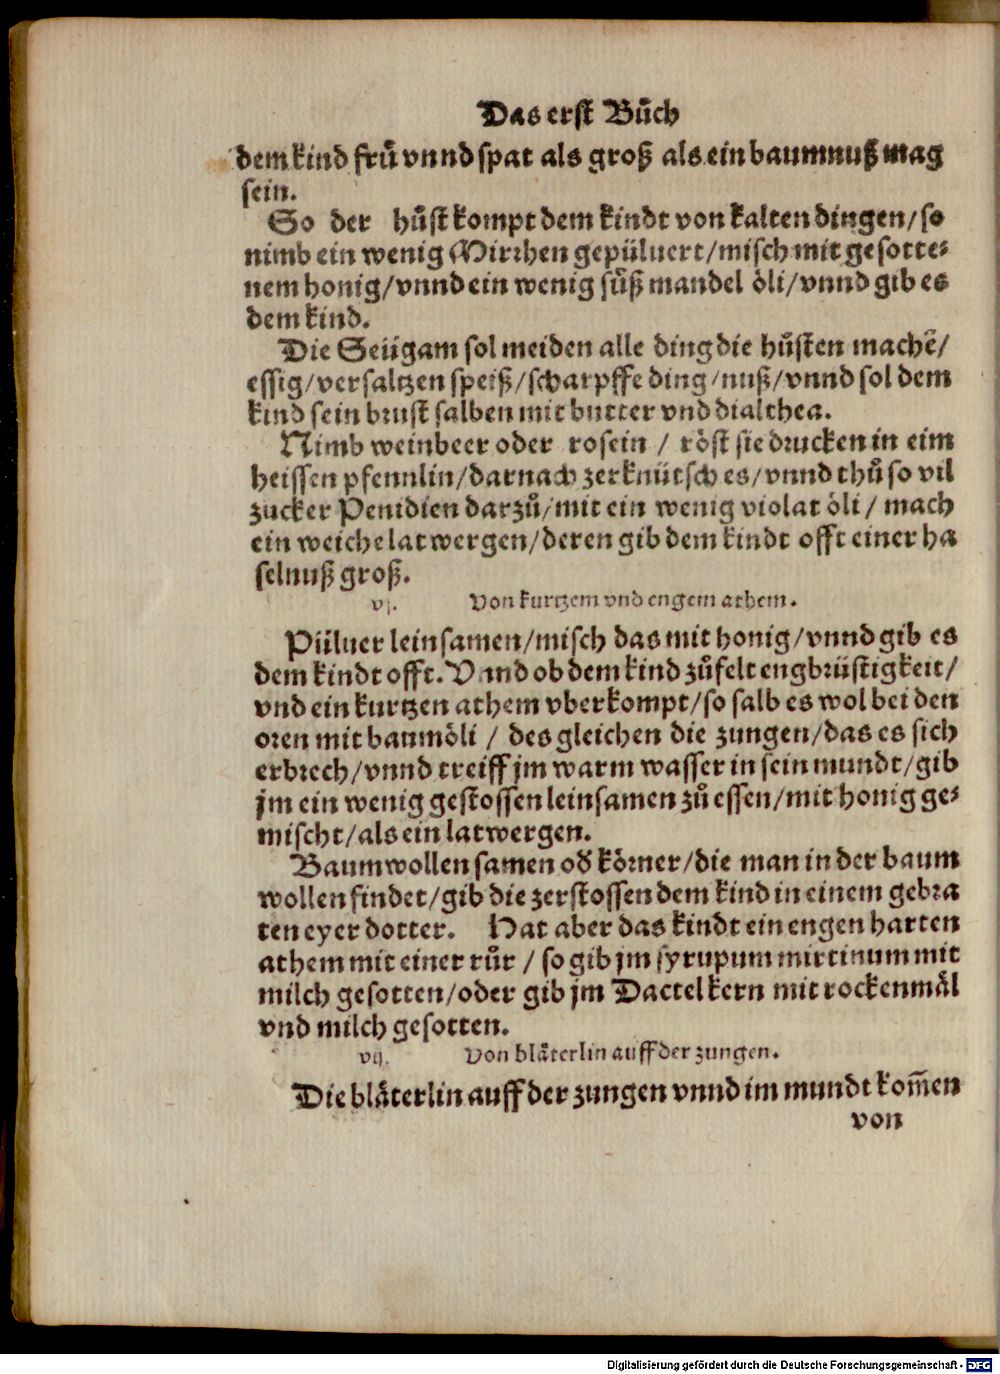 Das erst Bůch
dem kind frů vnnd spat als groß als ein baumnuß mag
sein.
So der hůst kompt dem kindt von kalten dingen/so
nimb ein wenig Mirrhen gepüluert/misch mit gesotte⸗
nem honig/vnnd ein wenig sůß mandel öli/vnnd gib es
dem kind.
Die Seügam sol meiden alle ding die hůsten machē/
essig/versaltzen speiß/scharpffe ding/nuß/vnnd sol dem
kind sein brust salben mit butter vnd dialthea.
Nimb weinbeer oder rosein / röst sie drucken in eim
heissen pfennlin/darnach zerknütsch es/vnnd thů so vil
zucker Penidien darzů/mit ein wenig violat öli / mach
ein weiche latwergen/deren gib dem kindt offt einer ha
selnuß groß.
vj. Von kurtzem vnd engem athem.
Püluer leinsamen/misch das mit honig/vnnd gib es
dem kindt offt. Vnnd ob dem kind zůfelt engbrüstigkeit/
vnd ein kurtzen athem vberkompt/so salb es wol bei den
oren mit baumöli / des gleichen die zungen/das es sich
erbrech/vnnd treiff jm warm wasser in sein mundt/gib
jm ein wenig gestossen leinsamen zů essen/mit honig ge⸗
mischt/als ein latwergen.
Baumwollen samen oð körner/die man in der baum
wollen findet/gib die zerstossen dem kind in einem gebra
ten eyer dotter. Hat aber das kindt ein engen harten
athem mit einer růr / so gib jm syrupum mirtinum mit
milch gesotten/oder gib jm Dactel kern mit rockenmål
vnd milch gesotten.
vij. Von blåterlin auff der zungen.
Die blåterlin auff der zungen vnnd im mundt kom̄en
von
Digitalisierung gefördert durch die Deutsche Forschungsgemeinschaft - DFG